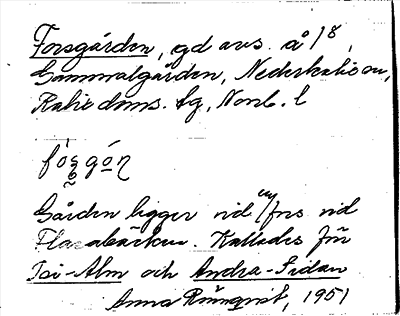 Forsgården, gd avs. å 18,
Gammalgården, Nederkalix sn,
Kalix doms. tg, Norrb. l
Gården ligger vid en fors vid
bäcken. Kallades för
Toi-Alm och Andra-Sidan
Anna Rönnqvist, 1951